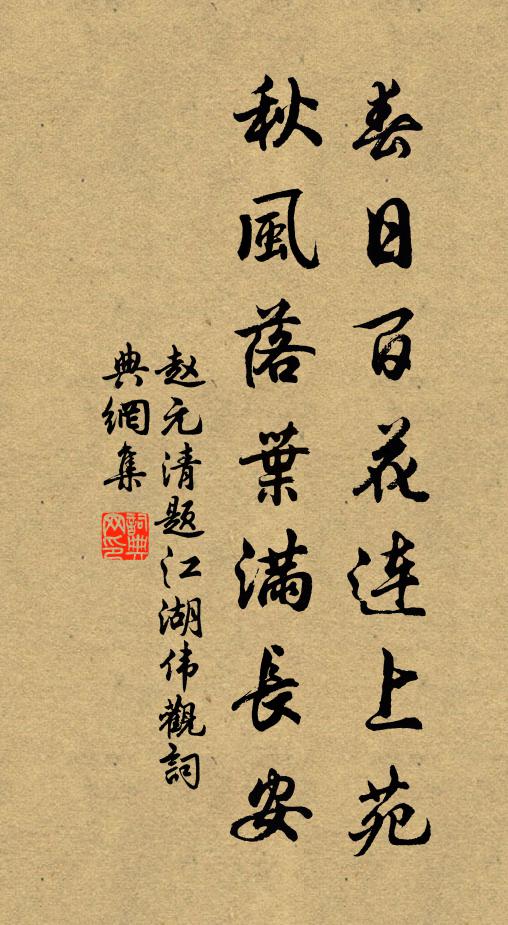 春日百花连上苑
秋風落葉滿長安
赵元清题江湖伟觀詞
典網集
詞典
网印